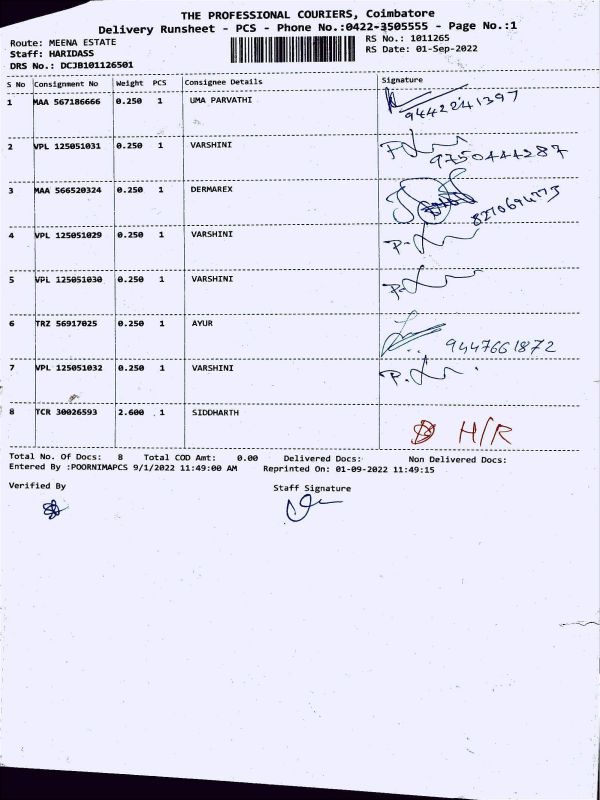 THE PROFESSIONAL COURIERS, Coimbatore
Delivery Runsheet - PCS - Phone No.:0422-3505555 - Page No.:1
Route: MEENA ESTATE RS No.: 1011265
Staff: HARIDASS RS Date: 01-Sep-2022
DRS No.: DCJB101126501
S No Consignment No Weight PCS Consignee Details Signature
1 MAA 567186666 0.250 1 UMA PARVATHI
9442241397
2 VPL 125051031 0.250 1 VARSHINI
9750444287
3 MAA 566520324 0.250 1 DERMAREX
4 VPL 125051029 0.250 1 VARSHINI
5 VPL 125051030 0.250 1 VARSHINI
6 TRZ 56917025 0.250 1 AYUR
9447661872
7 VPL 125051032 0.250 1 VARSHINI
8 TCR 30026593 2.600 1 SIDDHARTH
H/R
Total No. Of Docs: 8 Total COD Amt: 0.00 Delivered Docs: Non Delivered Docs:
Entered By :POORNIMAPCS 9/1/2022 11:49:00 AM Reprinted On: 01-09-2022 11:49:15
Verified By Staff Signature